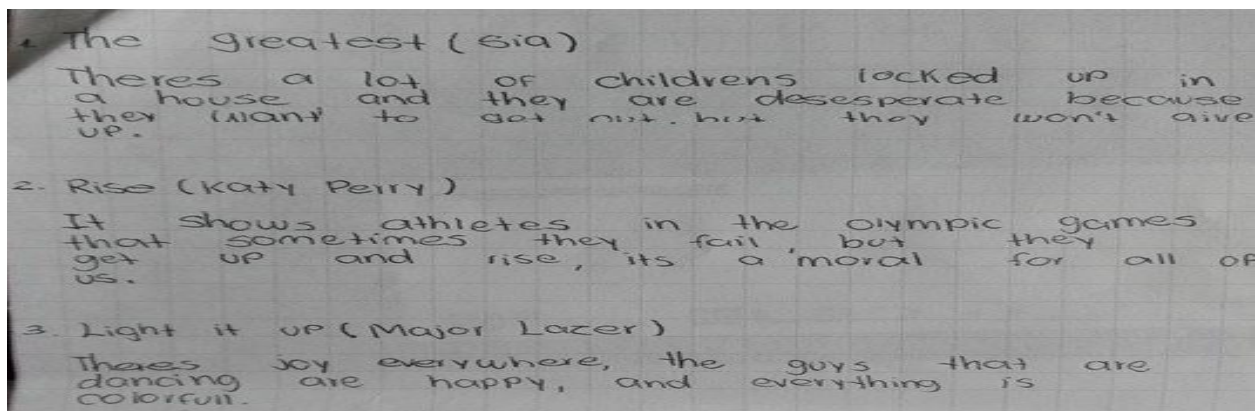 1. The greatest (Sia)
Theres a lot OF childrens locked up in
a house and they are desesperate because
they want to get out. but they won't give
up.
2. Rise (Katy Perry)
It shows athletes in the olympic games
that sometimes they fail, but they
get up and rise, its a moral for all OF
us.
3. Light it up (Major Lazer)
Theres joy everywhere, the guys that are
dancing are happy, and everything is
colorfull.